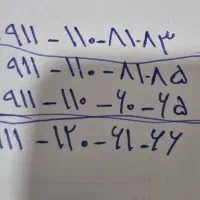 ۹۱۱ - ۱۱۰ - ۸۱-۸۳
۹۱۱ - ۱۱۰ - ۸۱-۸۵
۹۱۱ - ۱۱۰ - ۶۰ - ۶۵
۱۱۱ - ۱۲۰ - ۶۱ - ۶۶